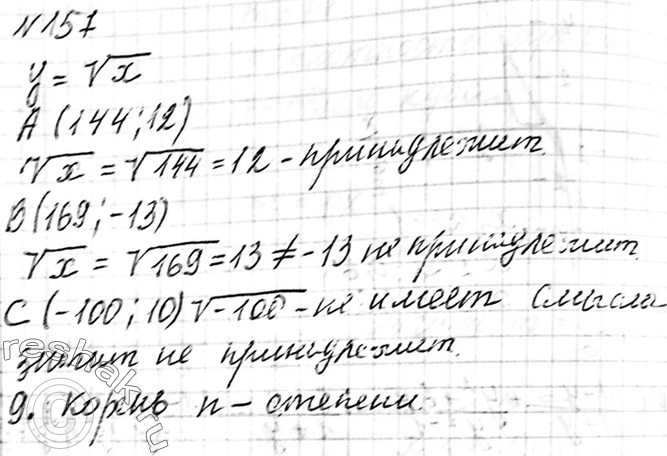 N157
y = √x
A (144; 12)
√x = √144 = 12 - принадлежит.
B (169; -13)
√x = √169 = 13 ≠ -13 не принадлежит.
C (-100; 10) √-100 - не имеет смысла
значит не принадлежит.
9. Корень n - степени.